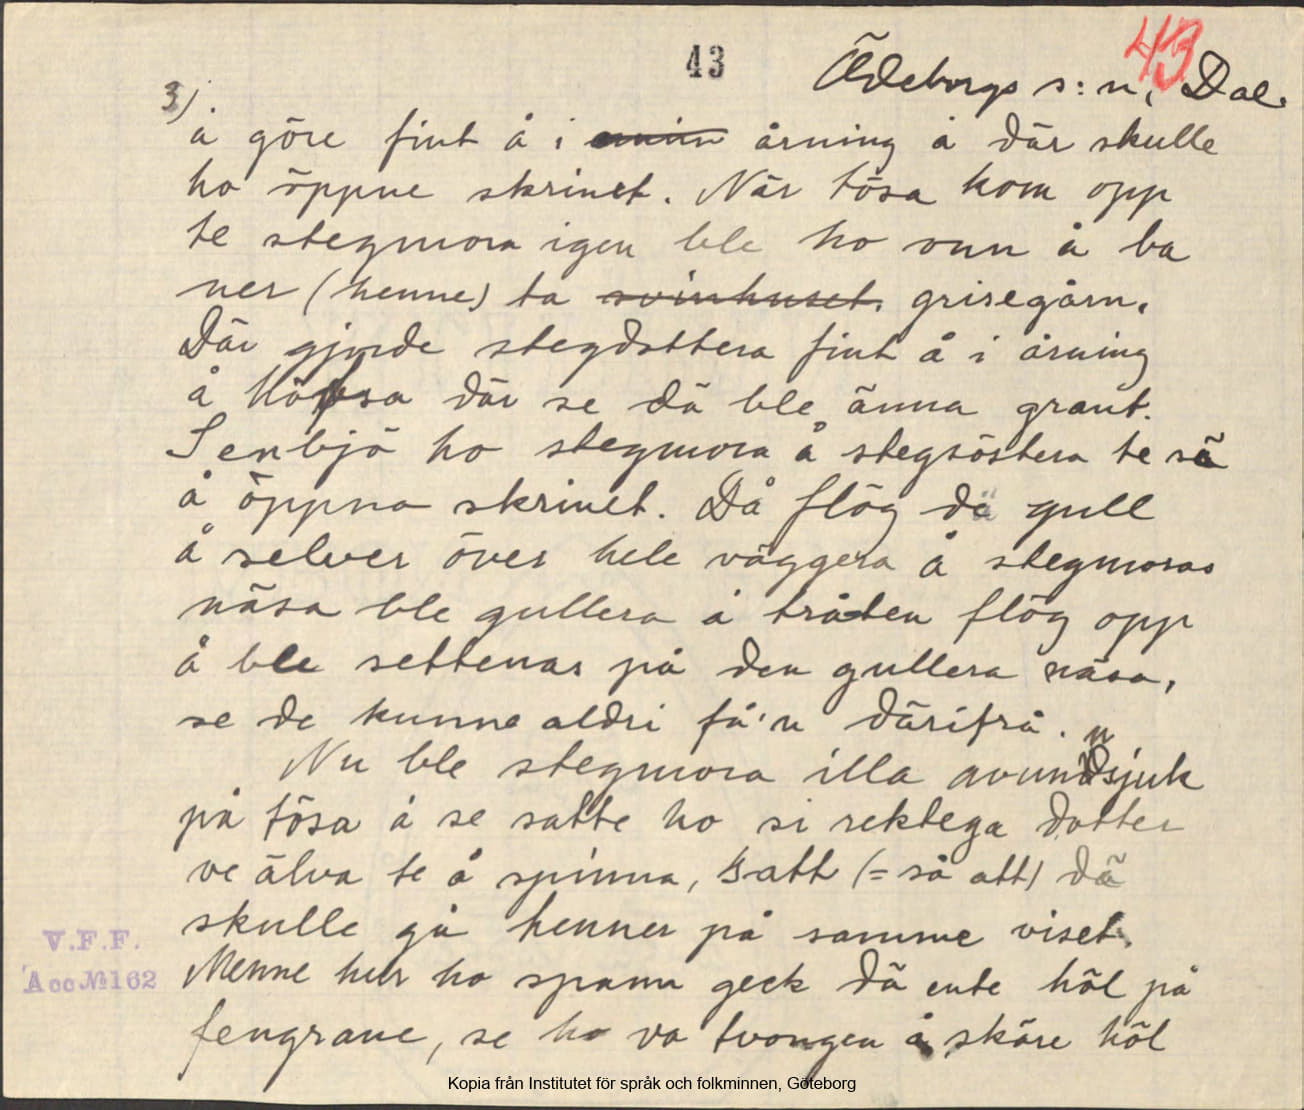 43
43
Ödeborgs s:n, Dal.
3)
å göre fint å i årning å där skulle
ho öppne skrinet. När tösa kom opp
te stegmora igen ble ho vnn å ba
ner (henne) ta svinhuset. grisegårn.
Där gjorde stegdottera fint å i årning
å kösa där se dä ble änna grant.
Senbjö ho stegmora å stegsöstera te sä
å öppna skrinet. Då flög dä gull
å selver över hele väggera å stegmoras
näsa ble gullera å tråten flög opp
å ble settenas på den gullera näsa,
se de kunne aldri få'n därifrå.
Nu ble stegmora illa avundsjuk
på tösa å se satte ho si rektega dotter
ve älva te å spinna, satt (= så att) dä
skulle gå henner på samme viset.
Menne hur ho spann geck dä ente höl på
fengrane, se ho va tvongen å skäre höl
V.F.F.
Acc № 162
Kopia från Institutet för språk och folkminnen, Göteborg